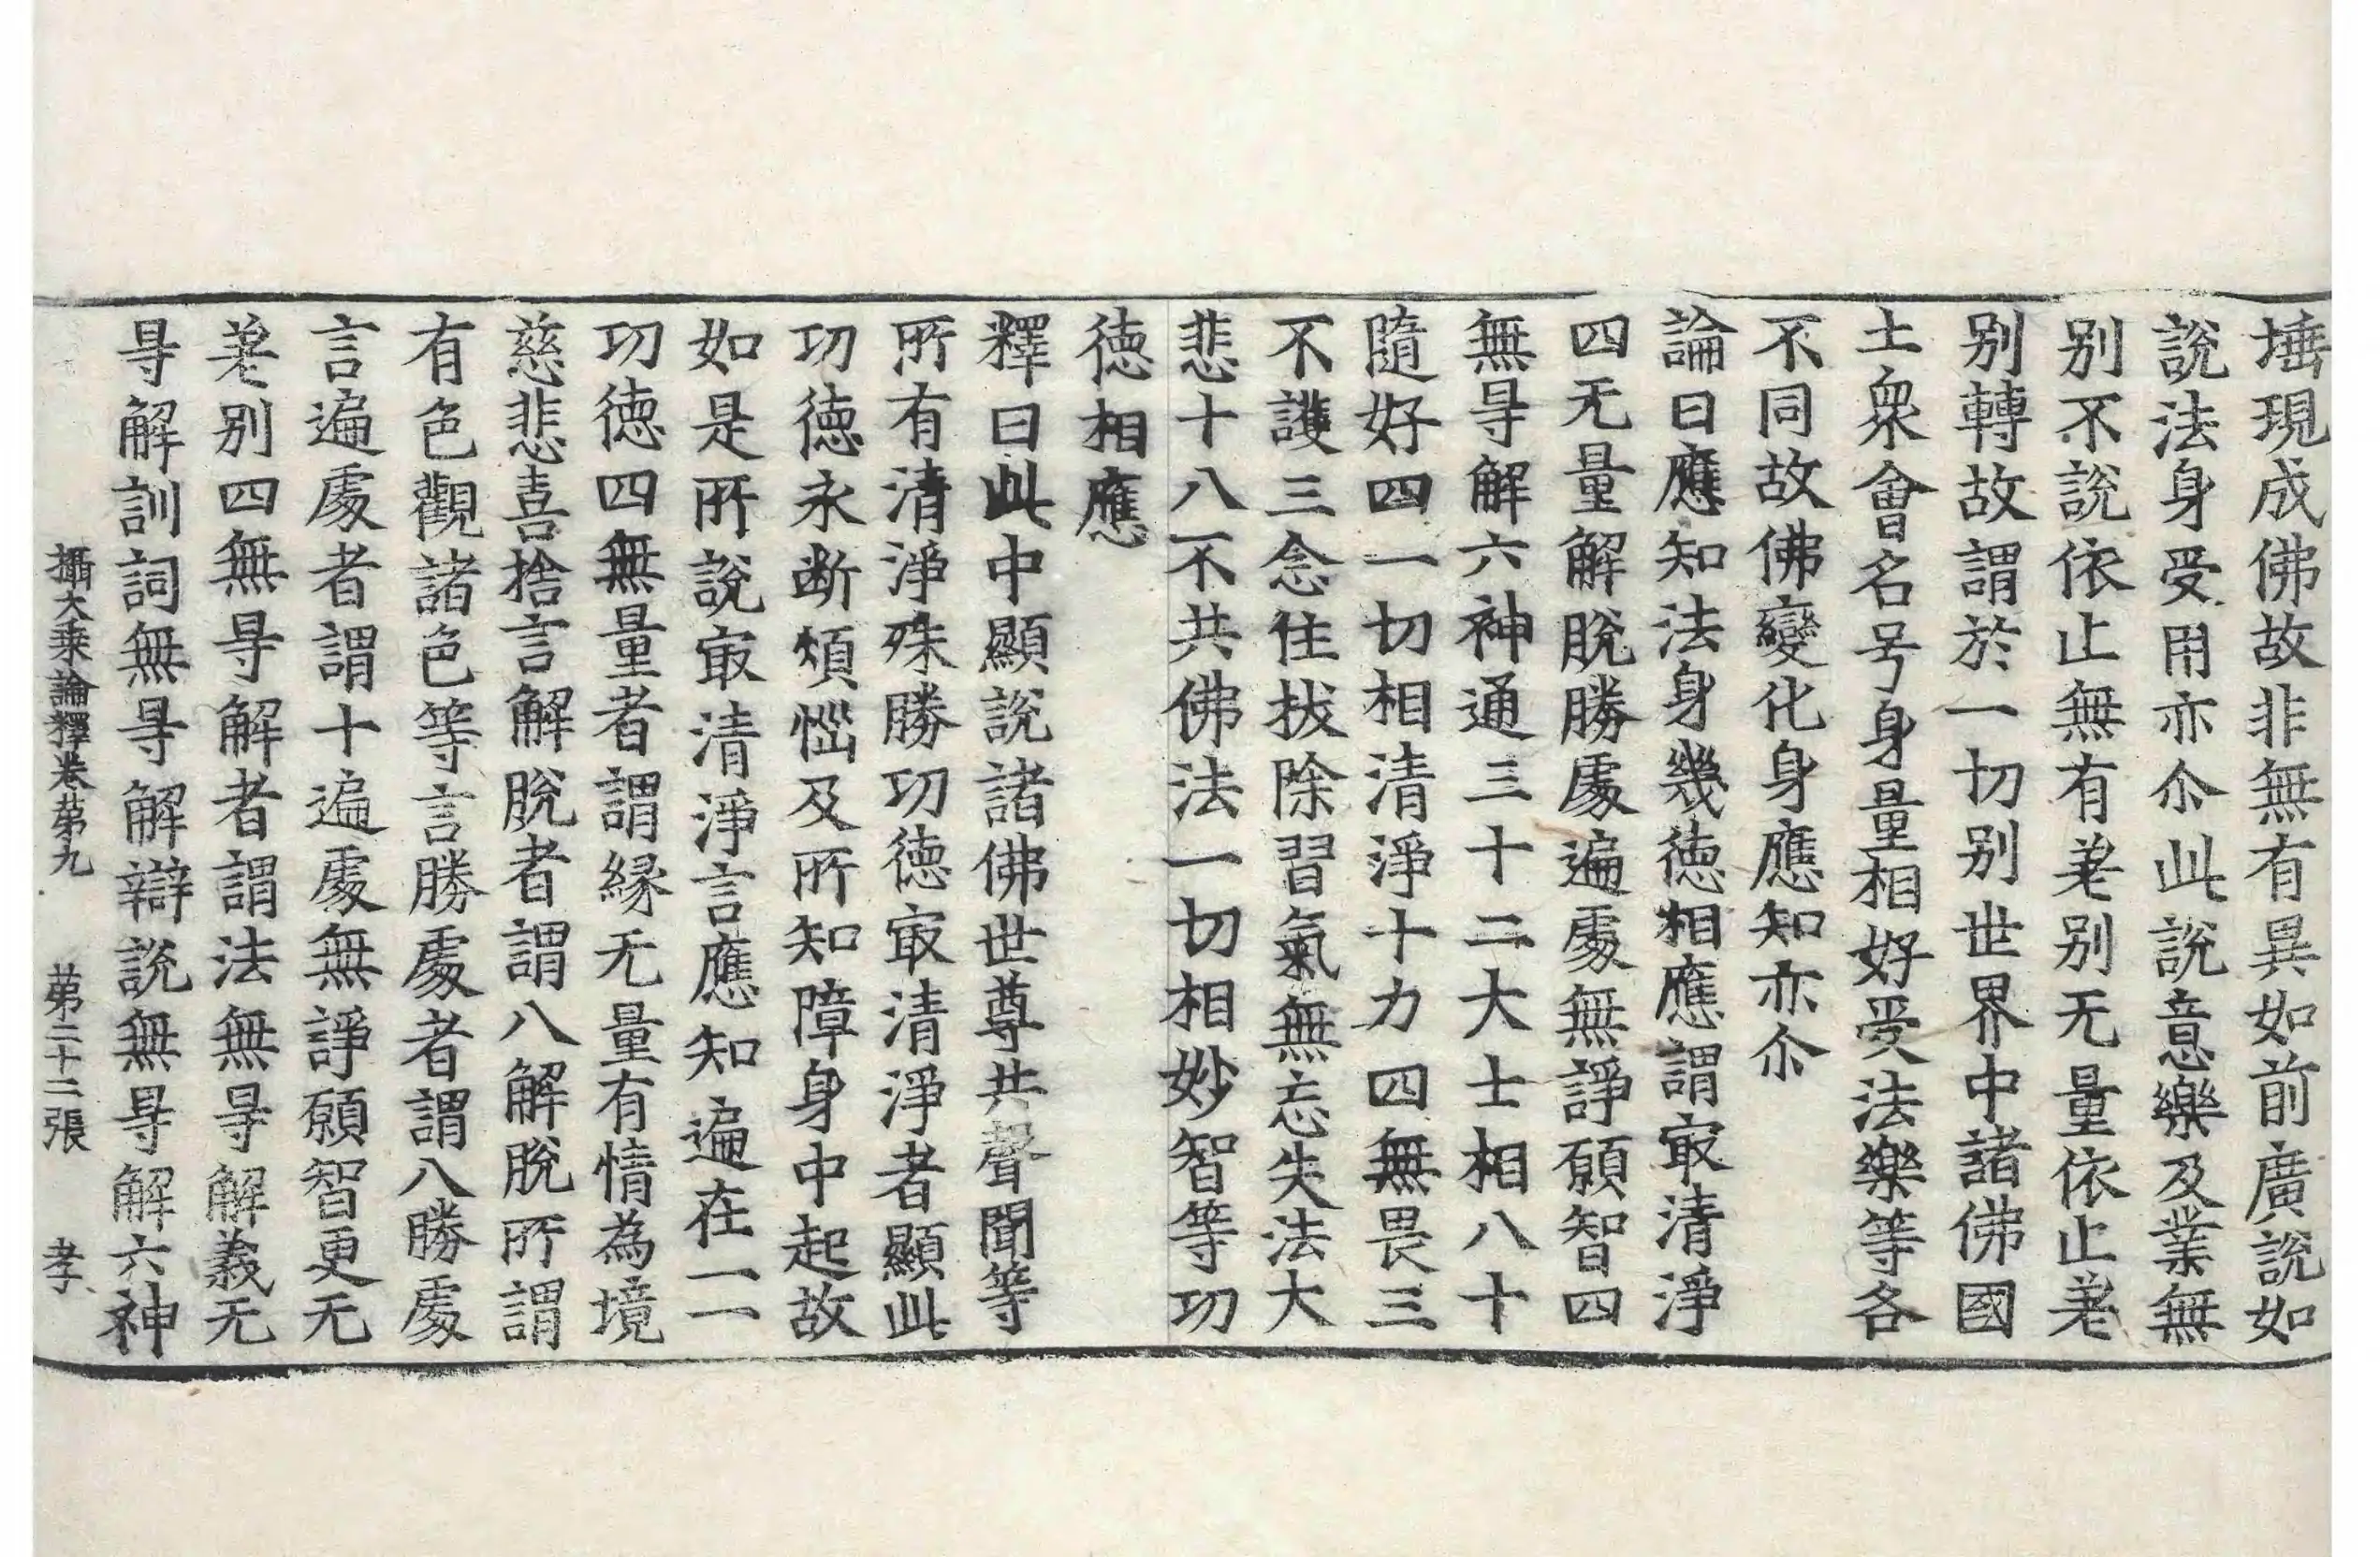 埵現成佛故非無有異如前廣說如
說法身受用亦尒此說意樂及業無
别不說依止無有差别无量依止差
别轉故謂於一切别世界中諸佛國
土衆會名号身量相好受法樂等各
不同故佛變化身應知亦尒
論曰應知法身幾德相應謂㝡清淨
四无量解脫勝處遍處無諍願智四
無㝵解六神通三十二大士相八十
隨好四一切相清淨十力四無畏三
不護三念住拔除習氣無忘失法大
悲十八不共佛法一切相妙智等功
德相應
釋曰此中顯說諸佛世尊共聲聞等
所有清淨殊勝功德㝡清淨者顯此
功德永断煩惱及所知障身中起故
如是所說㝡清淨言應知遍在一一
功德四無量者謂緣无量有情為境
慈悲喜捨言解脫者謂八解脫所謂
有色觀諸色等言勝處者謂八勝處
言遍處者謂十遍處無諍願智更无
差别四無㝵解者謂法無㝵解義无
㝵解訓詞無㝵解辯說無㝵解六神
攝大乘論釋卷苐九 苐二十二張 孝